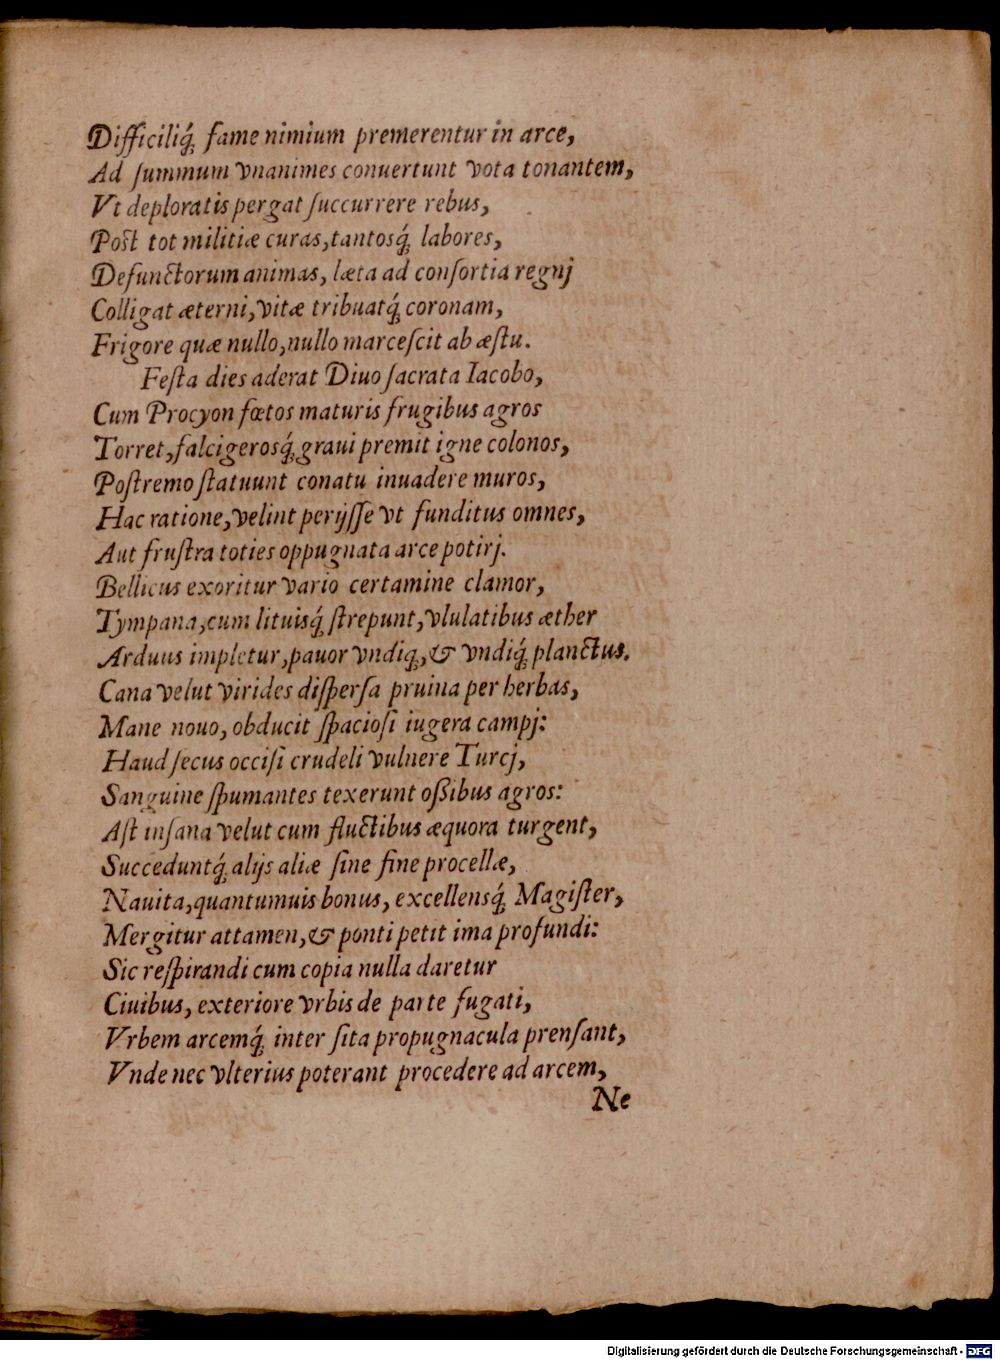 Difficiliq́; fame nimium premerentur in arce,
Ad ſummum vnanimes conuertunt vota tonantem,
Vt deploratis pergat ſuccurrere rebus,
Poſt tot militiæ curas, tantosq́; labores,
Defunctorum animas, læta ad conſortia regnj
Colligat æterni, vitæ tribuatq́; coronam,
Frigore quæ nullo, nullo marceſcit ab æſtu.
Feſta dies aderat Diuo ſacrata Iacobo,
Cum Procyon fœtos maturis frugibus agros
Torret, falcigerosq́; graui premit igne colonos,
Poſtremo ſtatuunt conatu inuadere muros,
Hac ratione, velint perijſſe vt funditus omnes,
Aut fruſtra toties oppugnata arce potirj.
Bellicus exoritur vario certamine clamor,
Tympana, cum lituisq́; ſtrepunt, vlulatibus æther
Arduus impletur, pauor vndiq;, & vndiq́; planctus.
Cana velut virides diſperſa pruina per herbas,
Mane nouo, obducit ſpacioſi iugera campj:
Haud ſecus occiſi crudeli vulnere Turcj,
Sanguine ſpumantes texerunt oſſibus agros:
Aſt inſana velut cum fluctibus æquora turgent,
Succeduntq́; alijs aliæ ſine fine procellæ,
Nauita, quantumuis bonus, excellensq́; Magiſter,
Mergitur attamen, & ponti petit ima profundi:
Sic reſpirandi cum copia nulla daretur
Ciuibus, exteriore vrbis de parte fugati,
Vrbem arcemq́; inter ſita propugnacula prenſant,
Vnde nec vlterius poterant procedere ad arcem,
Ne
Digitalisierung gefördert durch die Deutsche Forschungsgemeinschaft - DFG